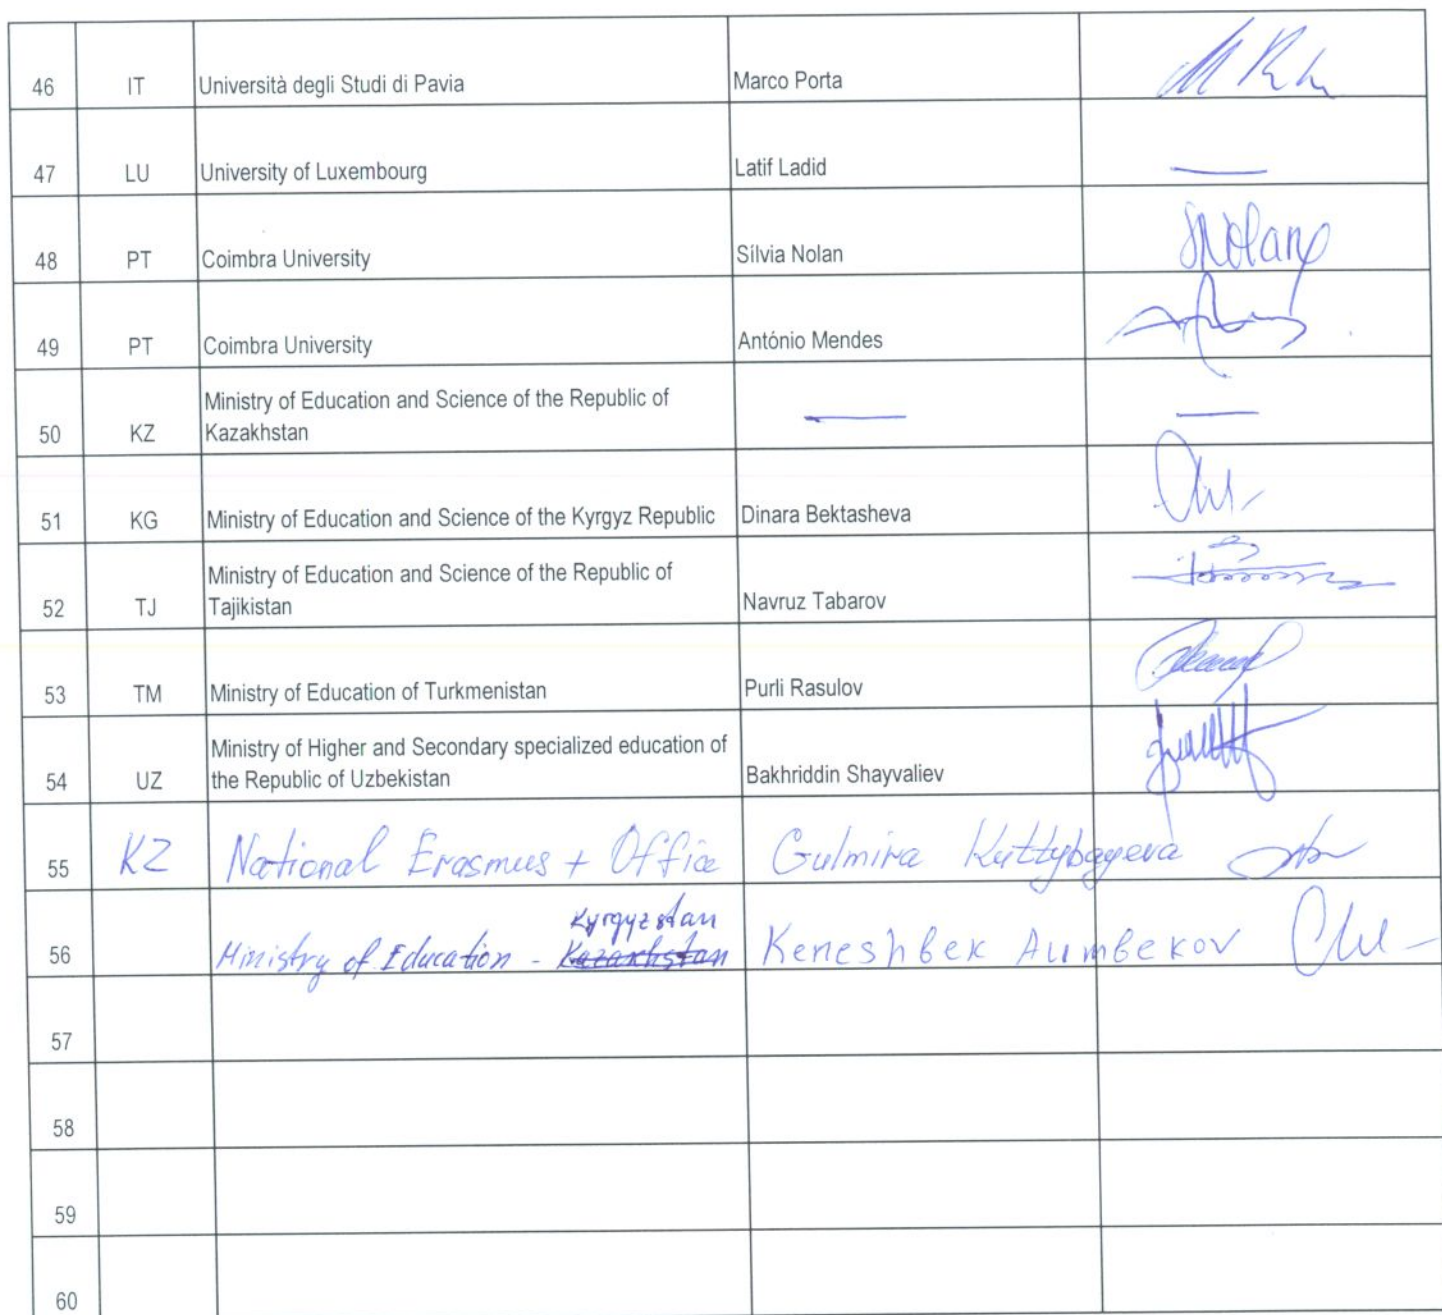 46 IT Università degli Studi di Pavia Marco Porta
47 LU University of Luxembourg Latif Ladid
48 PT Coimbra University Sílvia Nolan SNolan
49 PT Coimbra University António Mendes
Ministry of Education and Science of the Republic of
50 KZ Kazakhstan
51 KG Ministry of Education and Science of the Kyrgyz Republic Dinara Bektasheva
Ministry of Education and Science of the Republic of
52 TJ Tajikistan Navruz Tabarov
53 TM Ministry of Education of Turkmenistan Purli Rasulov
Ministry of Higher and Secondary specialized education of
54 UZ the Republic of Uzbekistan Bakhriddin Shayvaliev
55 KZ National Erasmus + Office Gulmira Kuttybayeva
Kyrgyzstan
56 Ministry of Education - Kazakhstan Keneshbek
57
58
59
60